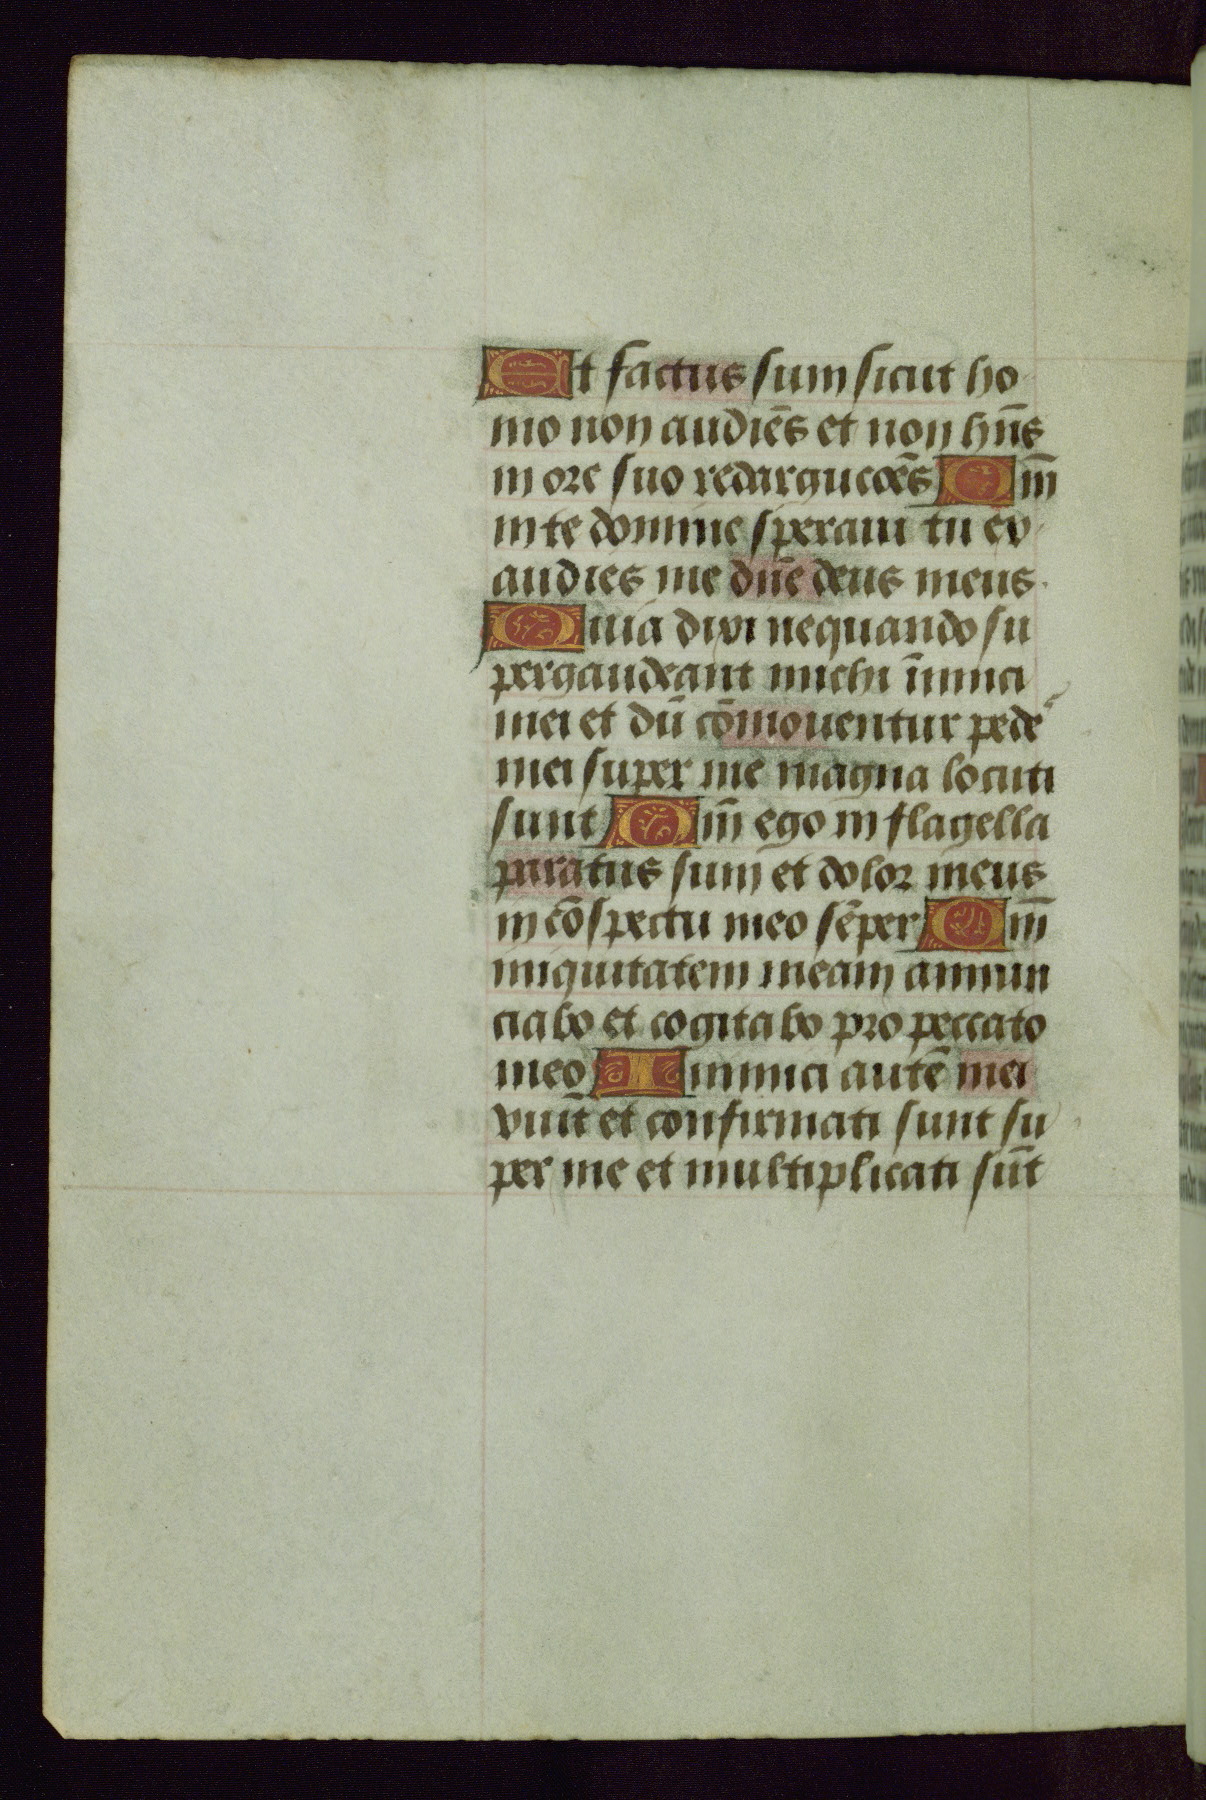 Et factus sum sicut ho
mo non audiēs et non hn̄s
in ore suo redargucōēs Qm̄
in te domine speraui tu ex
audies me dn̄e deus meus.
Quia dixi nequando su
pergaudeant michi inimici
mei et dū cōmouentur pede
mei super me magna locuti
sunt Qm̄ ego in flagella
paratus sum et dolor meus
in cōspectu meo sēper Qm̄
iniquitatem meam annun
ciabo et cogitabo pro peccato
meo Inimici autē mei
viuūt et confirmati sunt su
per me et multiplicati sūt